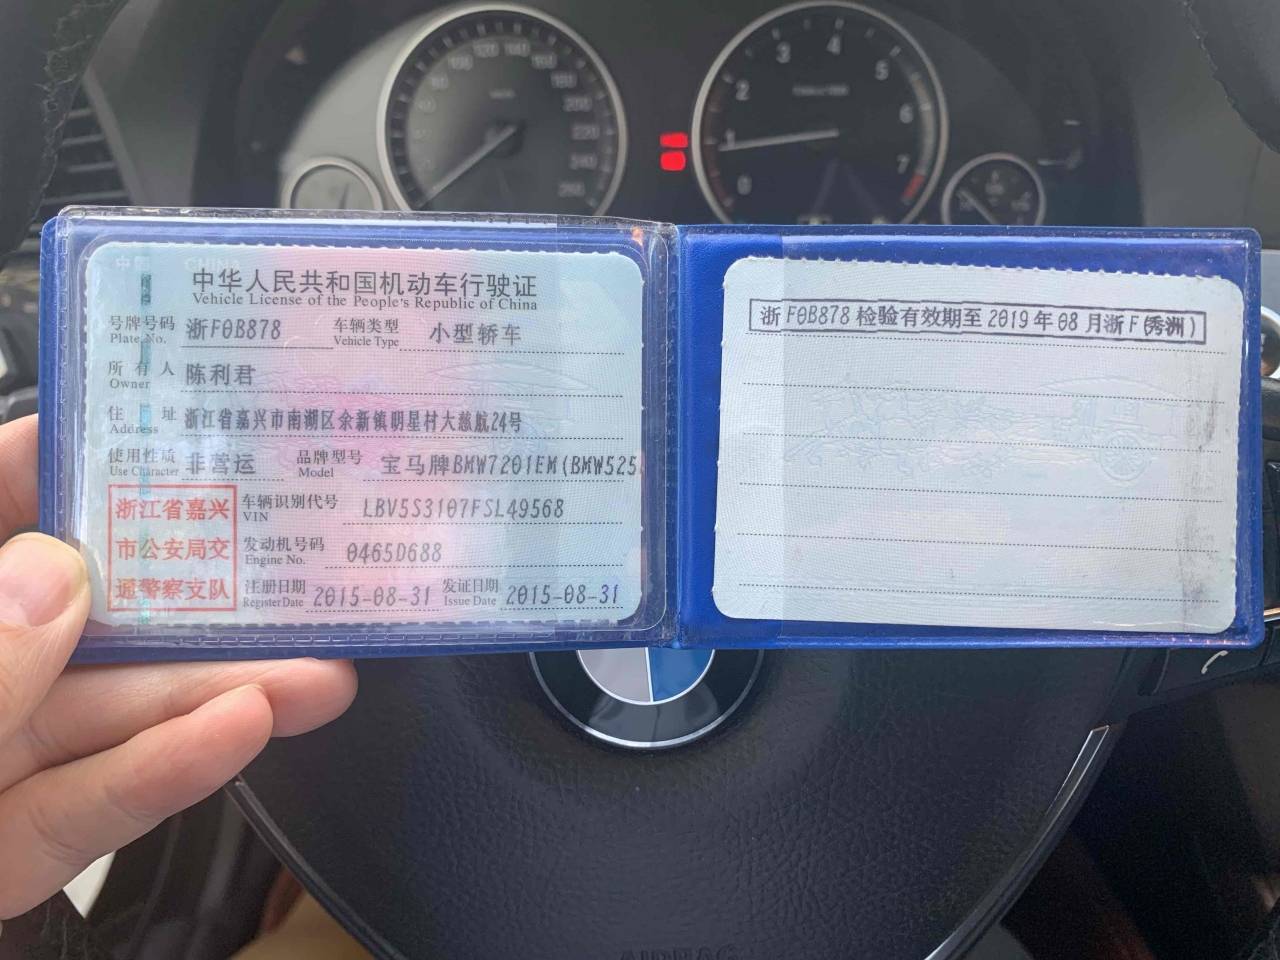 120 140
100 160
80 180
200
220
240
260
3 4 5
2 6
1 7
0
中 CHINA
中华人民共和国机动车行驶证
Vehicle License of the People's Republic of China
号牌号码 浙F0B878 车辆类型 小型轿车
Plate No. Vehicle Type
所有人 陈利君
Owner
住址 浙江省嘉兴市南湖区余新镇明星村大慈航24号
Address
使用性质 非营运 品牌型号 宝马牌BMW7201EM(BMW525
Use Character Model
浙江省嘉兴
市公安局交
通警察支队
车辆识别代号 LBV5S3107FSL49568
VIN
发动机号码 0465D688
Engine No.
注册日期 2015-08-31 发证日期 2015-08-31
Register Date Issue Date
浙F0B878检验有效期至2019年08月浙F(秀洲)